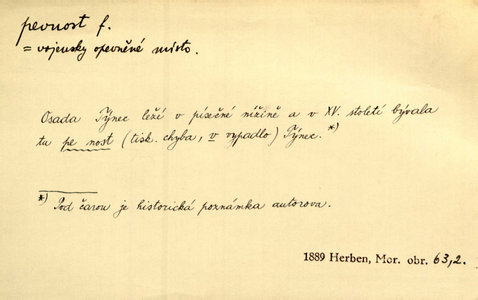 pevnost f.
= vojensky opevněné místo.
Osada Týnec leží v písečné nížině a v XV. století bývala
tu pe nost (tisk. chyba, v vypadlo) Týnec. *)
*) Pod čarou je historická poznámka autorova.
1889 Herben, Mor. obr. 63,2.